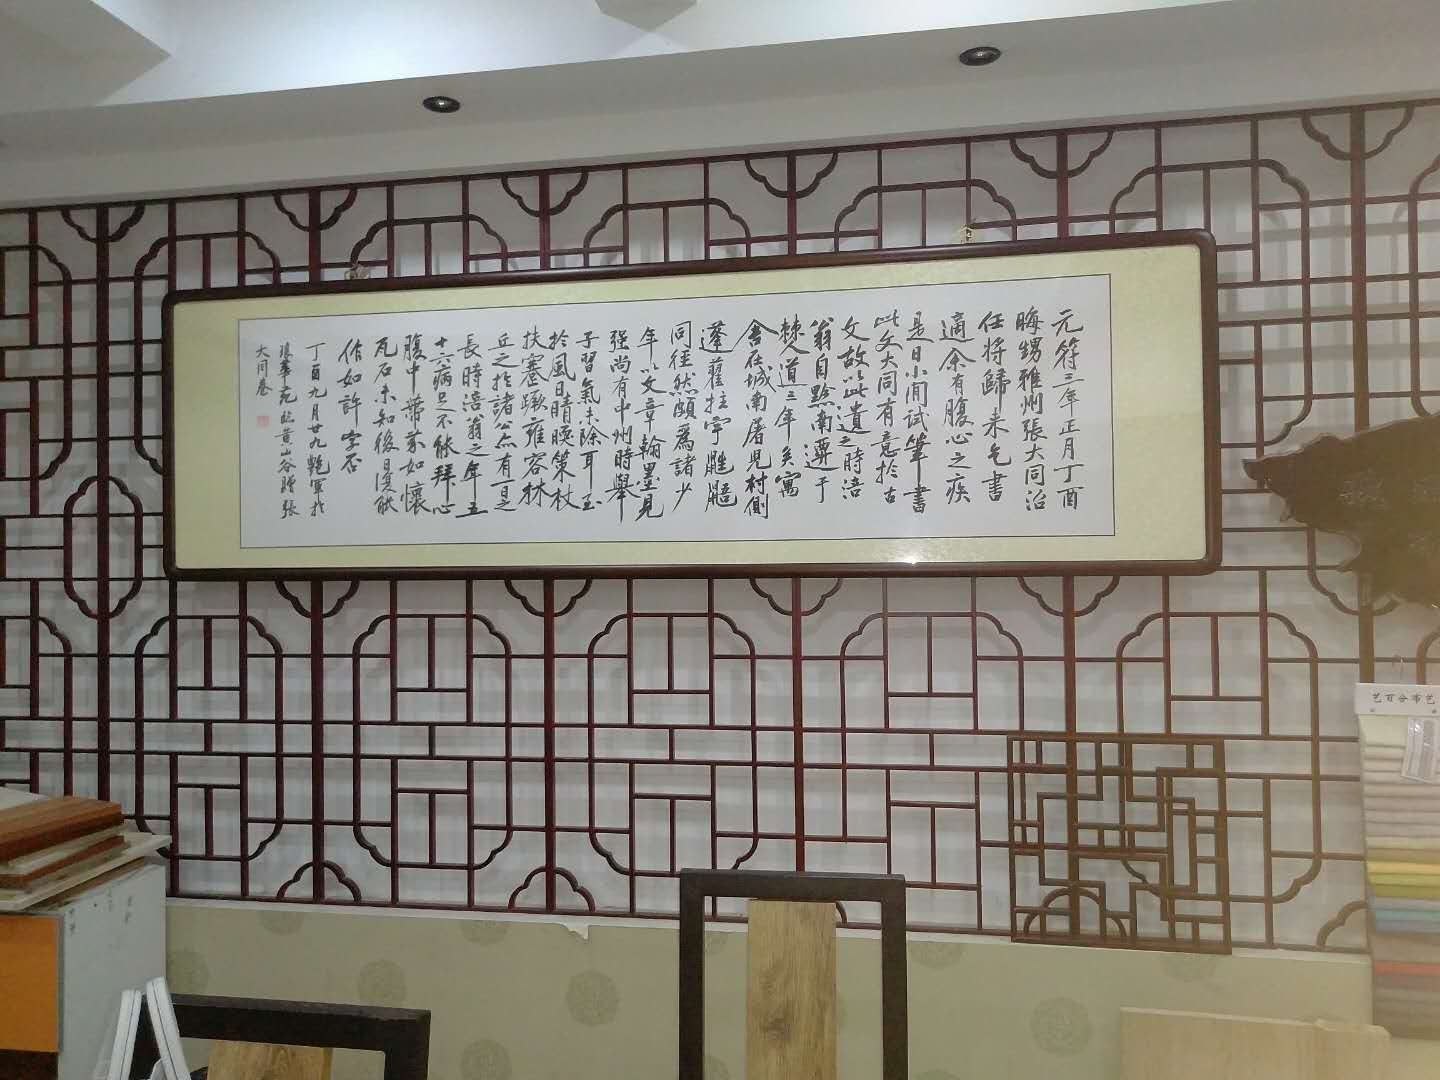 元符三年正月丁酉
晦甥雅州張大同治
任將歸来乞書
適余有腹心之疾
是日小閒試筆書
此文大同有意於古
文故以此遺之時涪
翁自黔南遷于
僰道三年矣寓
舍在城南屠兒村側
蓬藋拄宇鼪鼯
同徑然頗爲諸少
年以文章翰墨見
强尚有中州時舉
子習氣未除耳至
於風日晴暖策杖
扶蹇蹶雍容林
丘之於諸公亦有一日之
長時涪翁之年五
十六病足不能拜心
腹中蔕芥如懷
瓦石未知後日復能
作如許字否
丁酉九月廿九艷軍於
華苑臨黄山谷贈張
大同卷
艺百分布艺